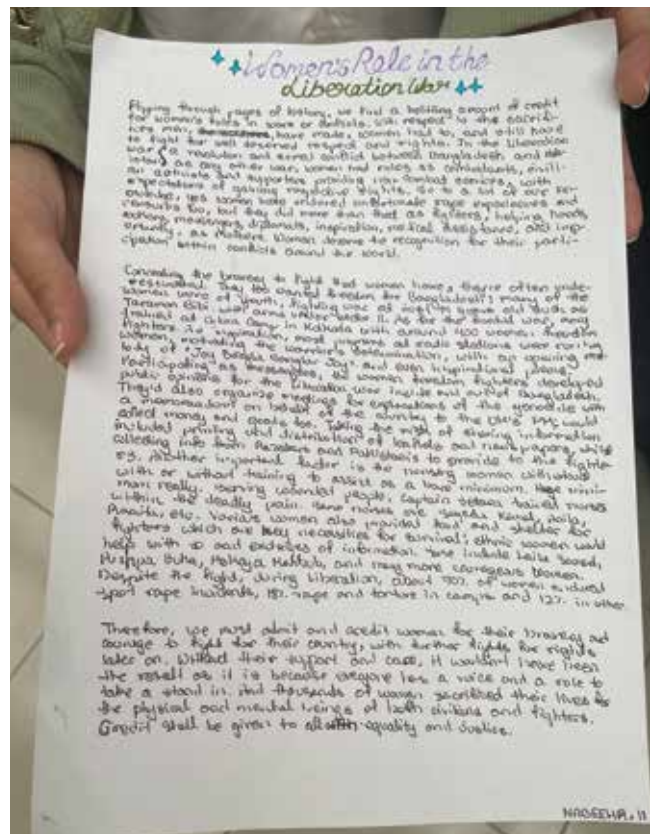 Women's Role in the
Liberation War
Flipping through pages of history, we find a belittling amount of credit
for women's roles in wars or conflicts. With respect to the sacrifi-
ces men, have made, women had to, and still have
to fight for well deserved respect and rights. In the Liberation
war, a revolution and armed conflict between Bangladesh and
as any other war, women had roles as combatants, civili-
an activists and supporters providing non-combat services, with
expectations of gaining respective rights. So to a lot of our
yes women have endured unfortunate rape experiences and
too, but they did more than that as fighters, helping hands,
messengers, diplomats, inspiration, medical assistance, and imp-
ortantly, as Mothers. Women deserve to recognition for their parti-
cipation within conflicts around the world.
Considering the bravery to fight that women have, they're often unde-
restimated. They too wanted freedom for Bangladesh; many of the
women were of youth, fighting war at years old such as
Taraman Bibi, with arms under As for the war, many
trained at Gobra Camp in Kolkata with around 400 women. freedom
fighters is inspiration, most present at radio stations were
women, motivating the warrior's determination, with an opening
lots of "Joy Bangla Banglar Joy" and even inspirational
Participating as messengers, the women freedom fighters developed
public opinions for the Liberation war inside and out of Bangladesh.
They'd also organize meetings for explanations of the genocide with
a memorandum on behalf of the to the would
collect money and goods too. Taking the risk of sharing information
included printing and distribution of leaflets and newspapers, while
collecting info from Razakars and Pakistanis to provide to the fight-
ers. Another important factor is the nursing women with
with or without training to assist as a bare minimum.
really serving wounded people. Captain Sitara trained nurses
within the deadly pain. Some nurses are
etc. Various women also provided food and shelter for
fighters which are key necessities for survival; ethnic women would
help with and of information. Some include
and many more courageous women.
Despite the fight, during liberation, about 70% of women endured
spot rape incidents, 18% rape and torture in camps and 12% in other.
Therefore, we must admit and credit women for their bravery and
courage to fight for their country, with further fights for rights
later on. Without their support and care, it wouldn't have been
the result as it is because everyone has a voice and a role to
take a stand in. And thousands of women sacrificed their lives for
the physical and mental beings of both civilians and fighters.
Credit shall be given to all with equality and Justice.
NABEEHA. 11